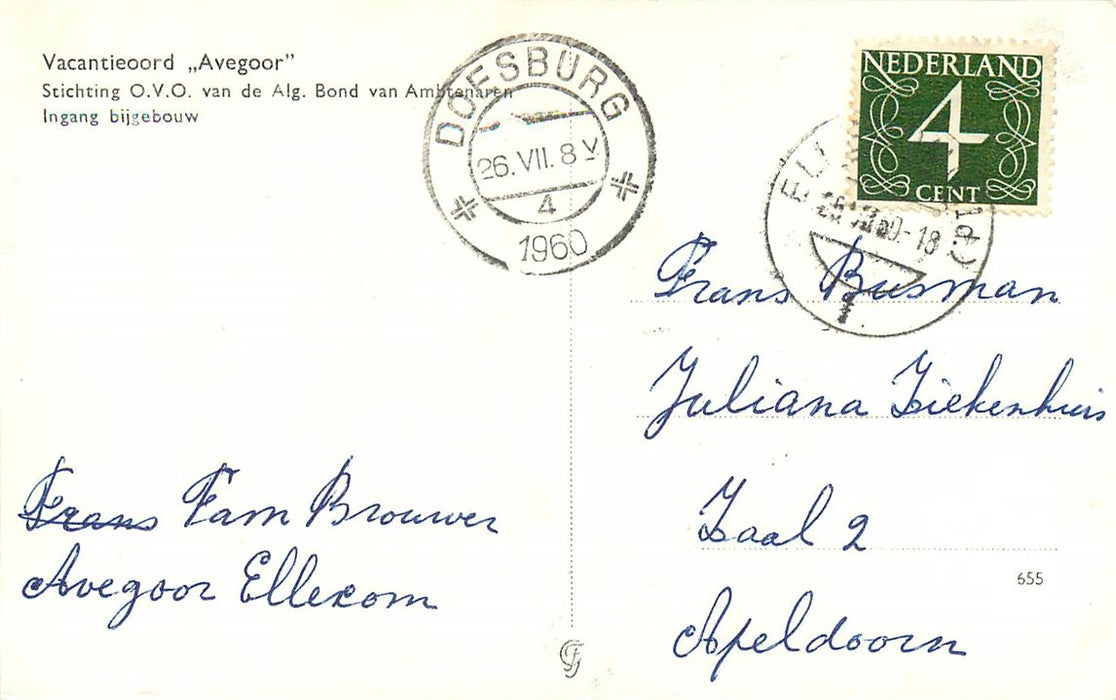 Vacantieoord „Avegoor”
Stichting O.V.O. van de Alg. Bond van Ambtenaren
Ingang bijgebouw
DOESBURG
26.VII.8 V
4
1960
NEDERLAND
4
CENT
-18
Frans Busman
Juliana Ziekenhuis
Zaal 2
Apeldoorn
655
Frans Fam Brouwer
Avegoor Ellecom